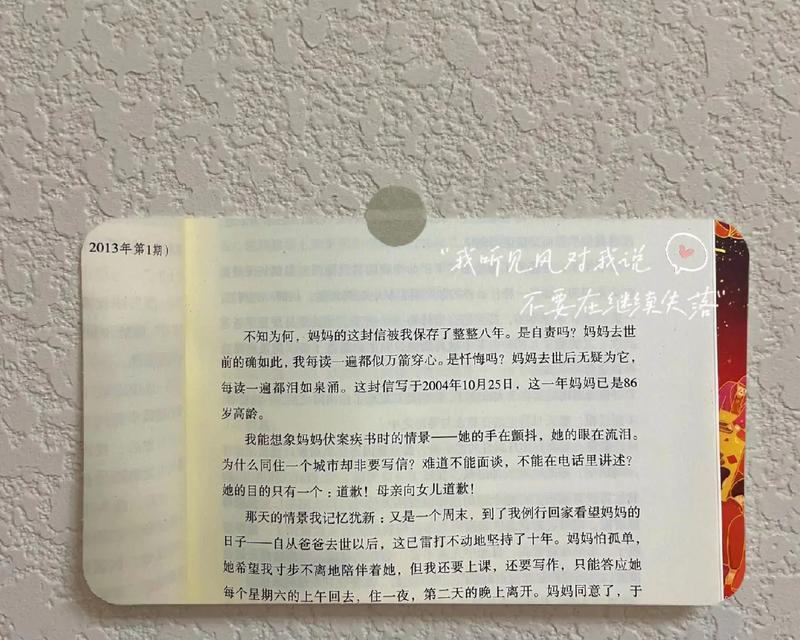 2013年第1期）
“我听见风对我说
不要在继续失落”
不知为何，妈妈的这封信被我保存了整整八年。是自责吗？妈妈去世
前的确如此，我每读一遍都似万箭穿心。是忏悔吗？妈妈去世后无疑为它，
每读一遍都泪如泉涌。这封信写于2004年10月25日，这一年妈妈已是86
岁高龄。
我能想象妈妈伏案疾书时的情景——她的手在颤抖，她的眼在流泪。
为什么同住一个城市却非要写信？难道不能面谈，不能在电话里讲述？
她的目的只有一个：道歉！母亲向女儿道歉！
那天的情景我记忆犹新：又是一个周末，到了我例行回家看望妈妈的
日子——自从爸爸去世以后，这已雷打不动地坚持了十年。妈妈怕孤单，
她希望我寸步不离地陪伴着她，但我还要上课，还要写作，只能答应她
每个星期六的上午回去，住一夜，第二天的晚上离开。妈妈同意了，于